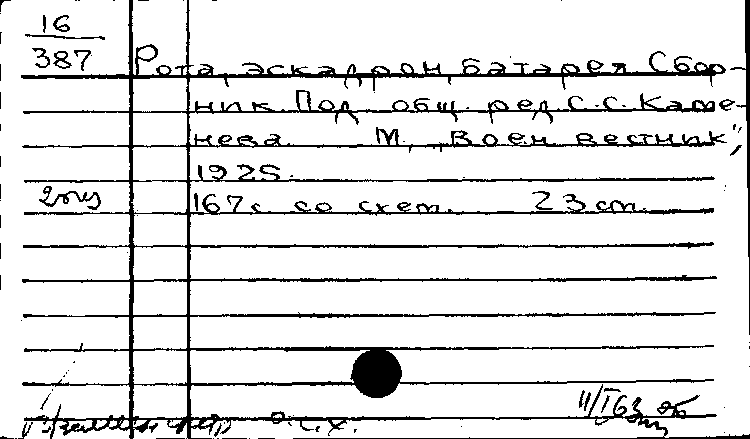 16
387
Рота, эскадрон, батарея Сбор-
ник. Под общ. ред. С.С. Каме-
нева. М, „Воен вестник",
1925.
2 экз
167 с. со схем. 23 см.
О.С.Х.